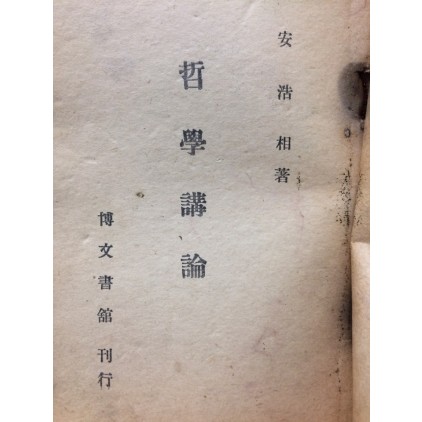 安浩相著
哲學講論
博文書館刊行